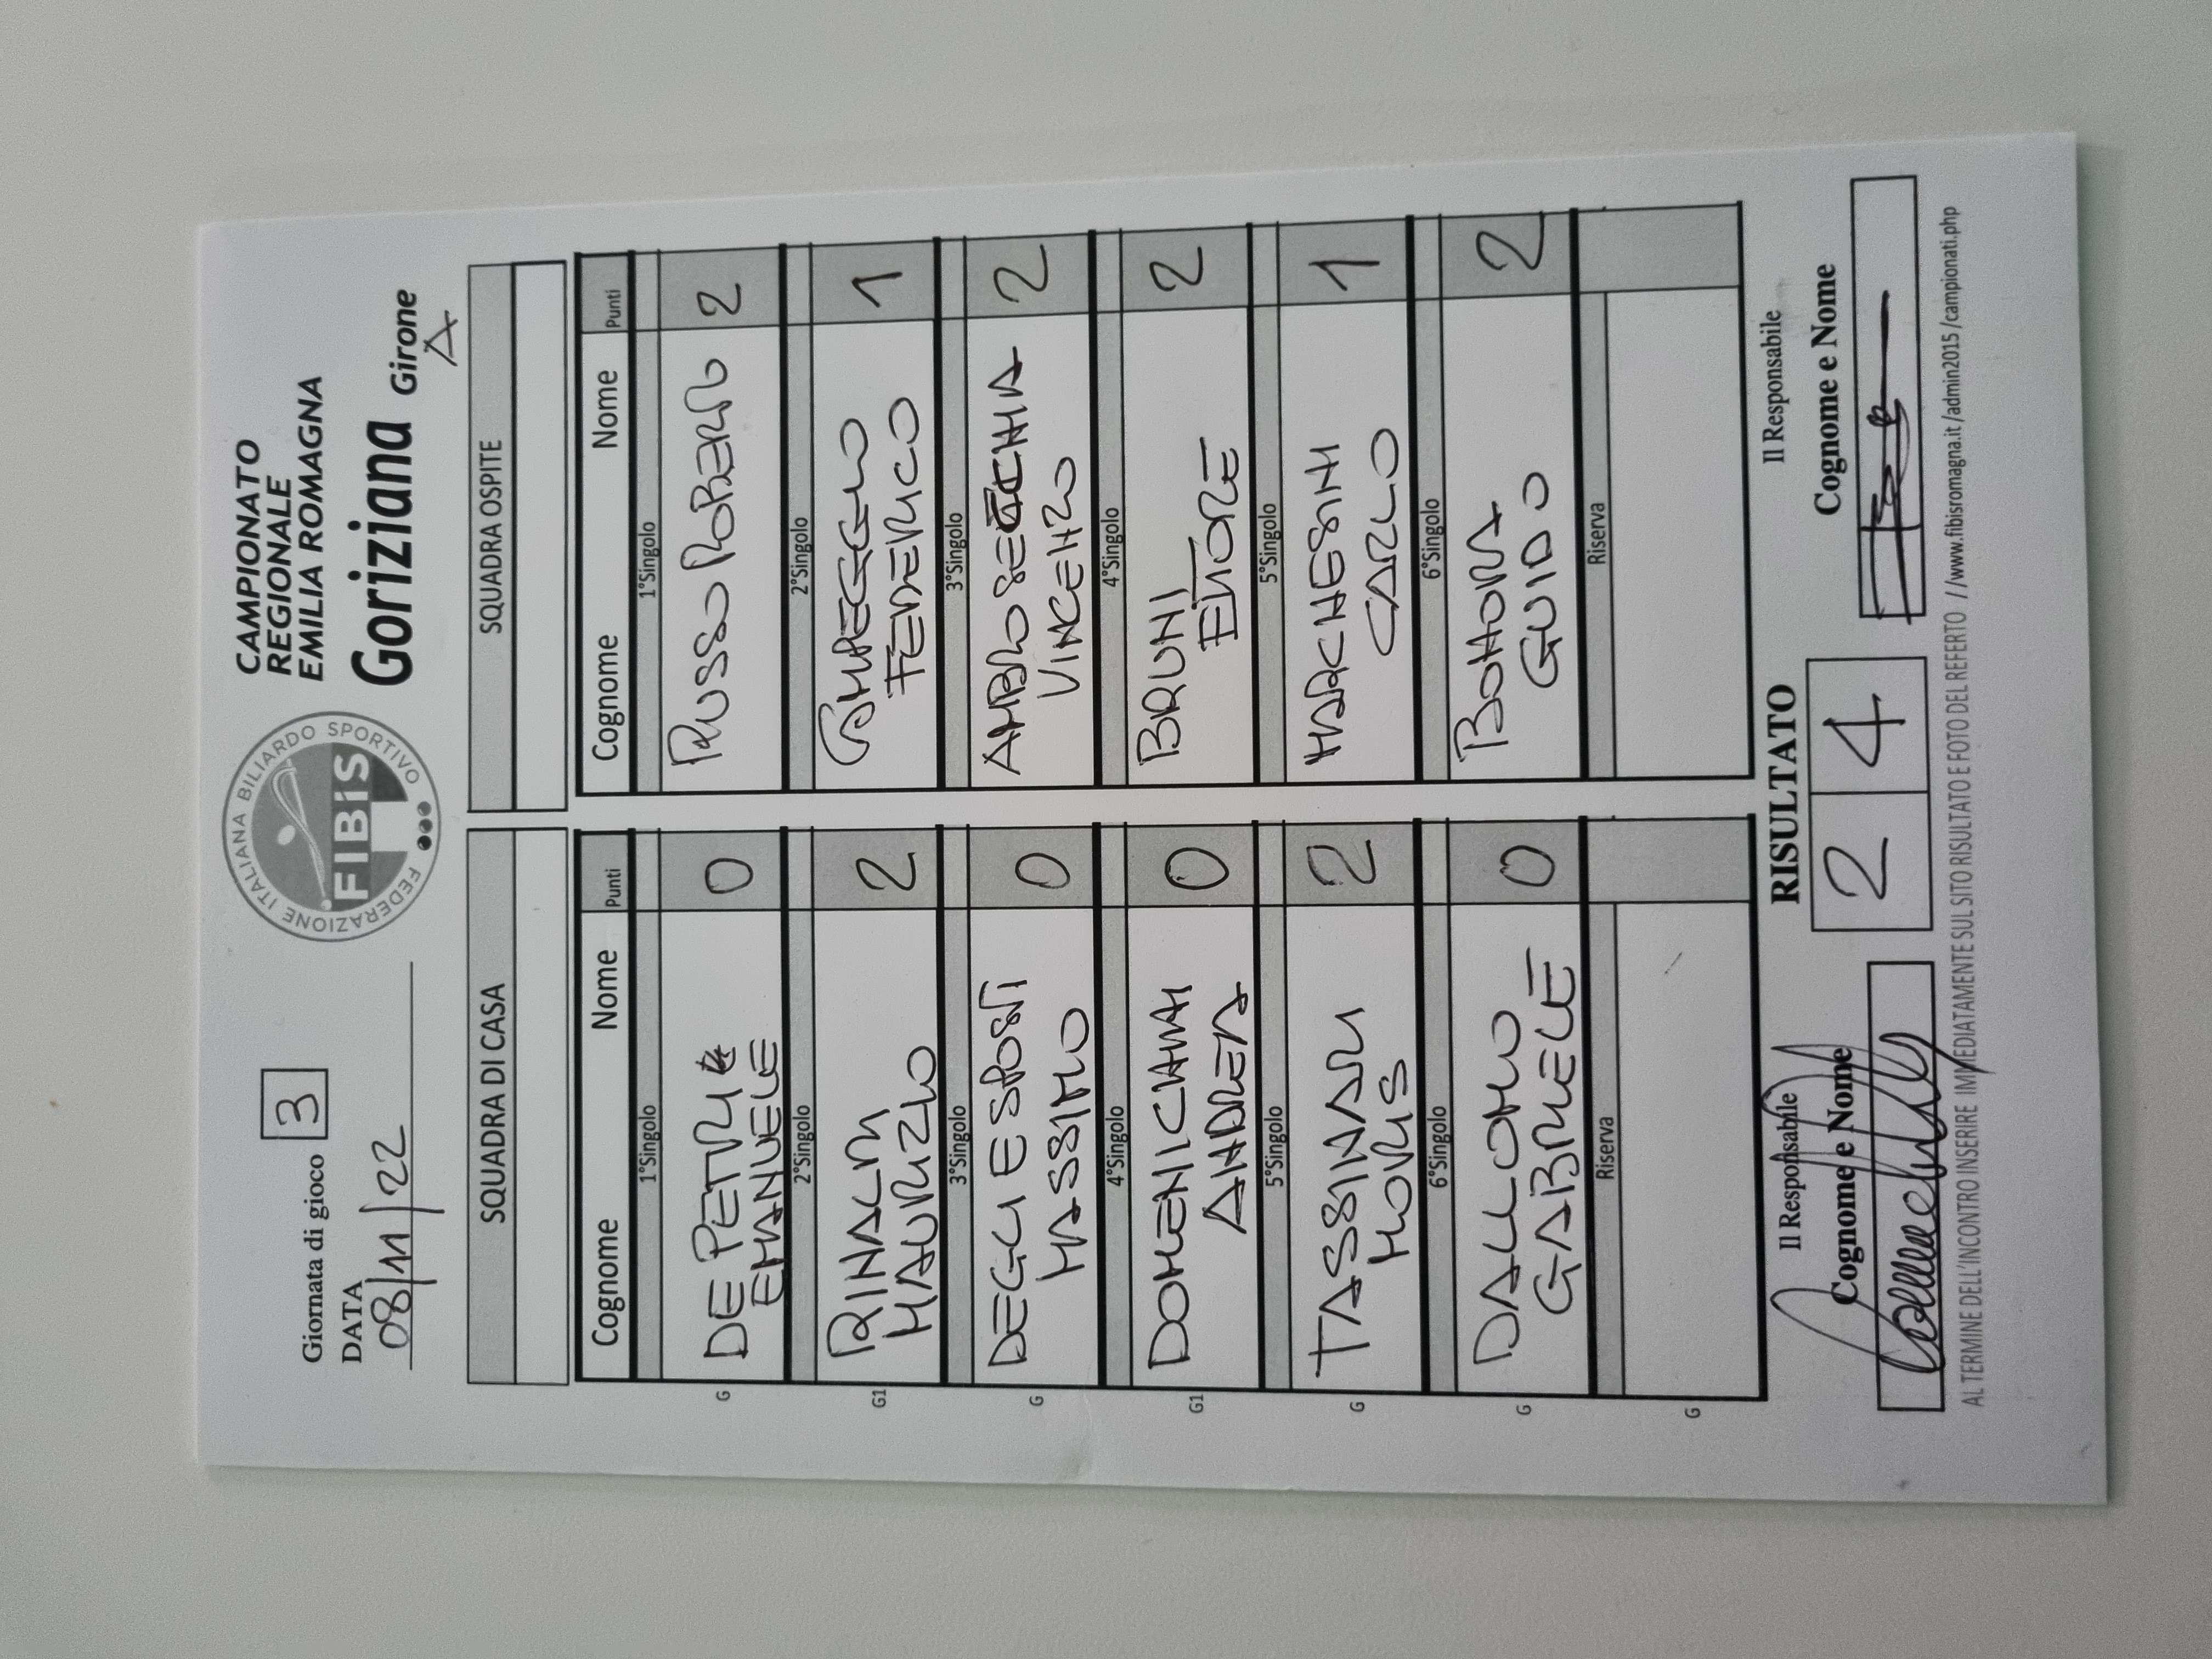 Giornata di gioco 3
DATA
08/11/22
FEDERAZIONE ITALIANA BILIARDO SPORTIVO
FIBiS
CAMPIONATO
REGIONALE
EMILIA ROMAGNA
Goriziana Girone
A
SQUADRA DI CASA
Cognome Nome Punti
1°Singolo
G DE PETRI 0
EMANUELE
2°Singolo
G1 RINALDI 2
MAURIZIO
3°Singolo
G DEGLI ESPOSTI 0
MASSIMO
4°Singolo
G1 DOMENICHINI 0
ANDREA
5°Singolo
G TASSINARI 2
MORIS
6°Singolo
G DALLOMO 0
GABRIELE
Riserva
G
SQUADRA OSPITE
Cognome Nome Punti
1°Singolo
RUSSO ROBERTO 2
2°Singolo
CAMPEGGIO 1
FEDERICO
3°Singolo
AMBROSECCHIA 2
VINCENZO
4°Singolo
BRUNI 2
ETTORE
5°Singolo
MARCHESINI 1
CARLO
6°Singolo
BONORA 2
GUIDO
Riserva
Il Responsabile
Cognome e Nome
RISULTATO
2 4
Il Responsabile
Cognome e Nome
AL TERMINE DELL'INCONTRO INSERIRE IMMEDIATAMENTE SUL SITO RISULTATO E FOTO DEL REFERTO //www.fibisromagna.it /admin2015 /campionati.php